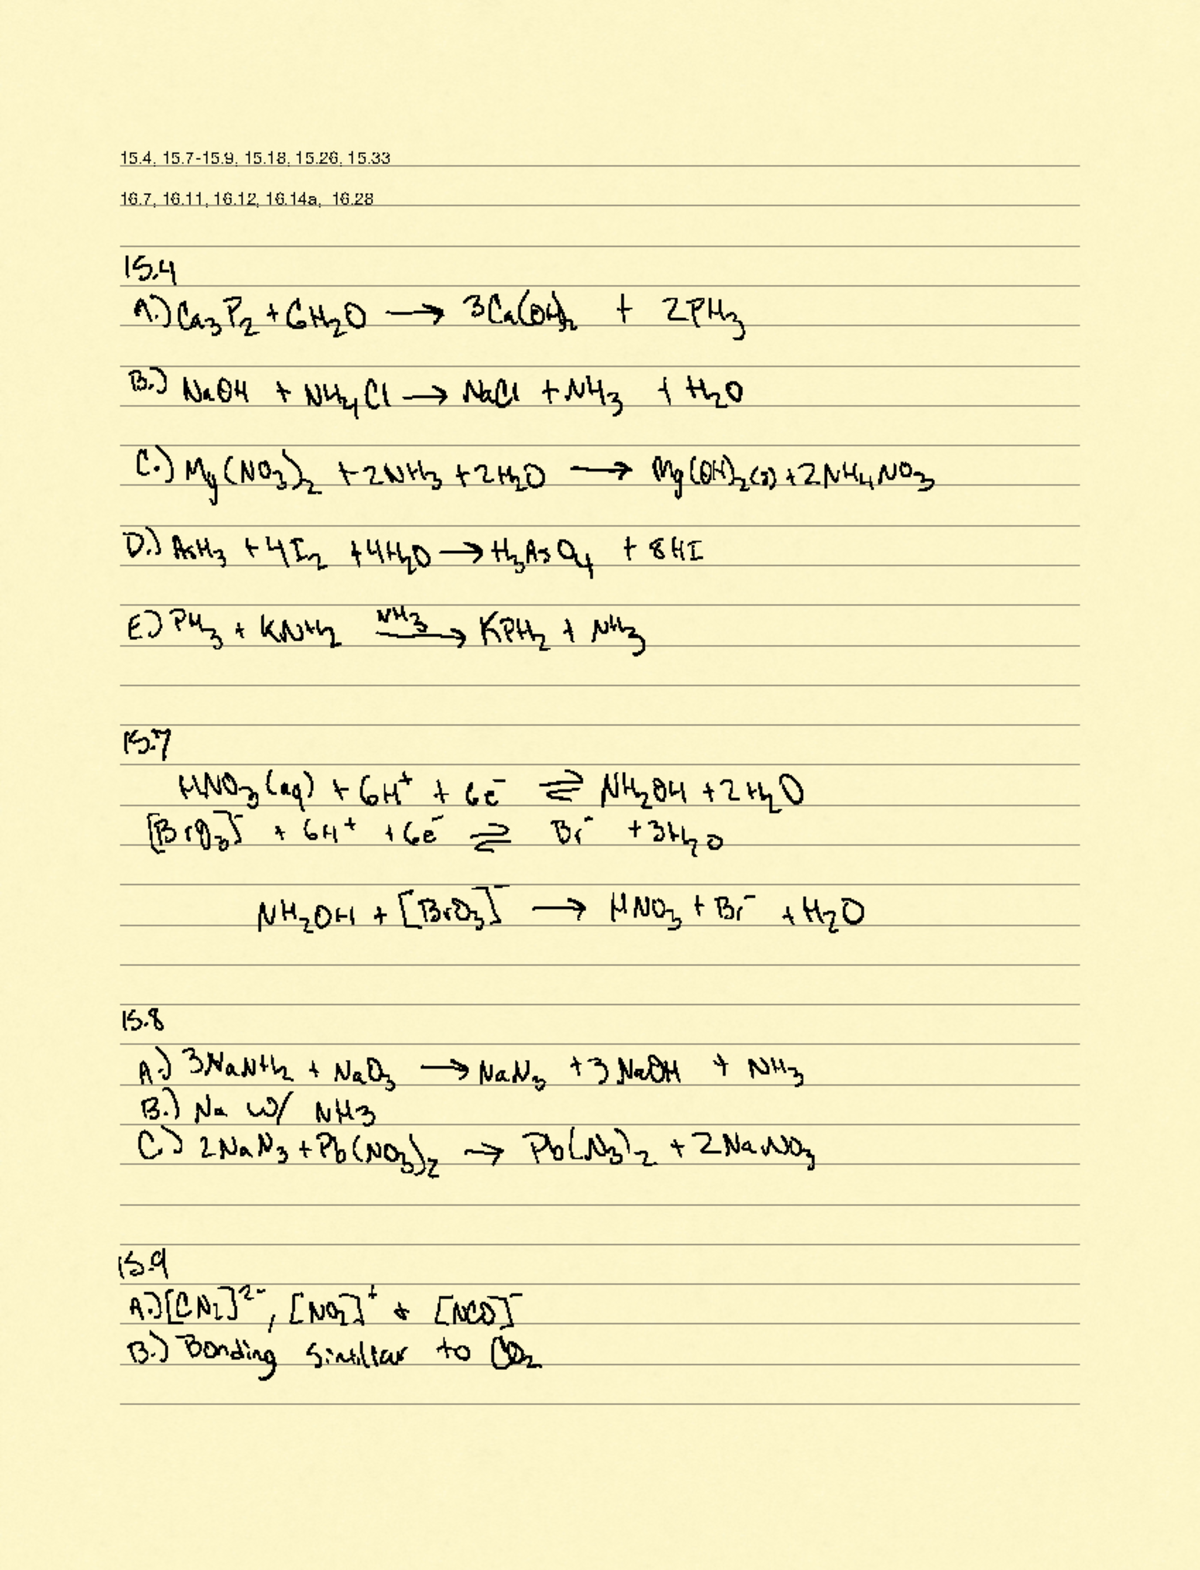 15.4, 15.7-15.9, 15.18, 15.26, 15.33
16.7, 16.11, 16.12, 16.14a, 16.28
15.4
A.) Ca₃P₂ + 6H₂O → 3Ca(OH)₂ + 2PH₃
B.) NaOH + NH₄Cl → NaCl + NH₃ + H₂O
C.) Mg(NO₃)₂ + 2NH₃ + 2H₂O → Mg(OH)₂(s) + 2NH₄NO₃
D.) AsH₃ + 4I₂ + 4H₂O → H₃AsO₄ + 8HI
E) PH₃ + KNH₂ NH₃→ KPH₂ + NH₃
15.7
HNO₃(aq) + 6H⁺ + 6e⁻ ⇌ NH₂OH + 2H₂O
[BrO₃]⁻ + 6H⁺ + 6e⁻ ⇌ Br⁻ + 3H₂O
NH₂OH + [BrO₃]⁻ → HNO₃ + Br⁻ + H₂O
15.8
A.) 3NaNH₂ + NaO₃ → NaN₃ + 3NaOH + NH₃
B.) Na w/ NH3
C) 2NaN₃ + Pb(NO₃)₂ → Pb(N₃)₂ + 2NaNO₃
15.9
A.) [CN₂]²⁻, [NO₂]⁺ & [NCO]⁻
B.) Bonding simillar to CO₂